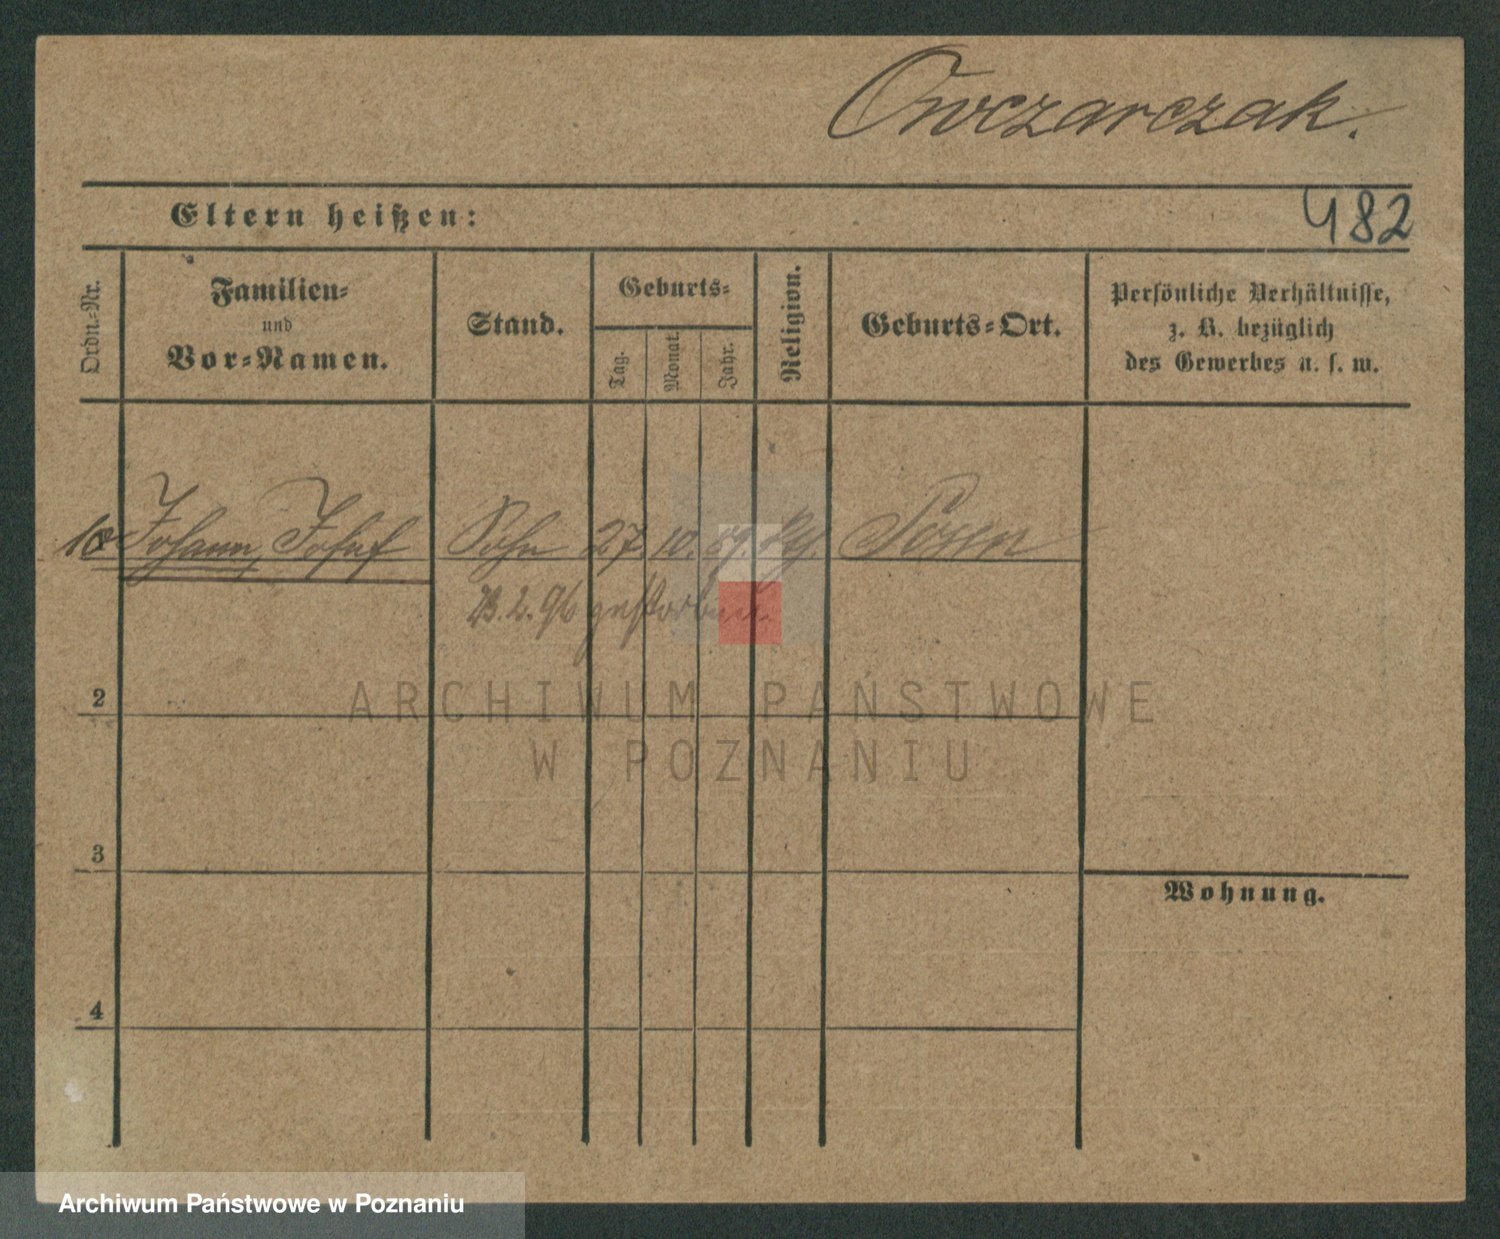 Owczarczak.
Eltern heißen:
482
Ordn.-Nr.
Familien-
und
Vor-Namen.
Stand.
Geburts-
Tag.
Monat.
Jahr.
Religion.
Geburts-Ort.
Persönliche Verhältnisse,
z. B. bezüglich
des Gewerbes u. s. w.
Johann, Josef Sohn 27. 10. 89. Posen
2. 96 gestorben.
2
3
4
Wohnung.
ARCHIWUM PAŃSTWOWE
W POZNANIU
Archiwum Państwowe w Poznaniu